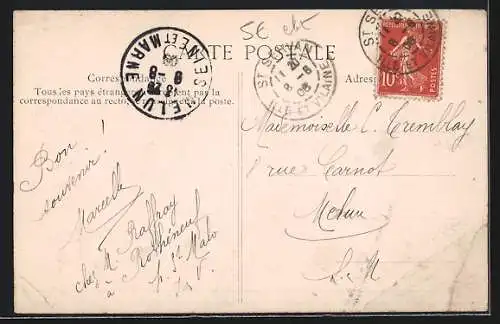 5E
CARTE POSTALE
Correspondance
Tous les pays étrangers n'acceptent pas la
correspondance au recto
à la poste.
Adresse
MELUN
SEINE ET MARNE
ST SERVAN
ILLE-ET-VILAINE
ST SERVAN
ILLE-ET-VILAINE
10
POSTES
Bon !
souvenir !
Marcelle
chez M. Raffray
à Rothéneuf
p. St Malo
I & V.
Mademoiselle C. Tremblay
rue Carnot
Melun
S.-M